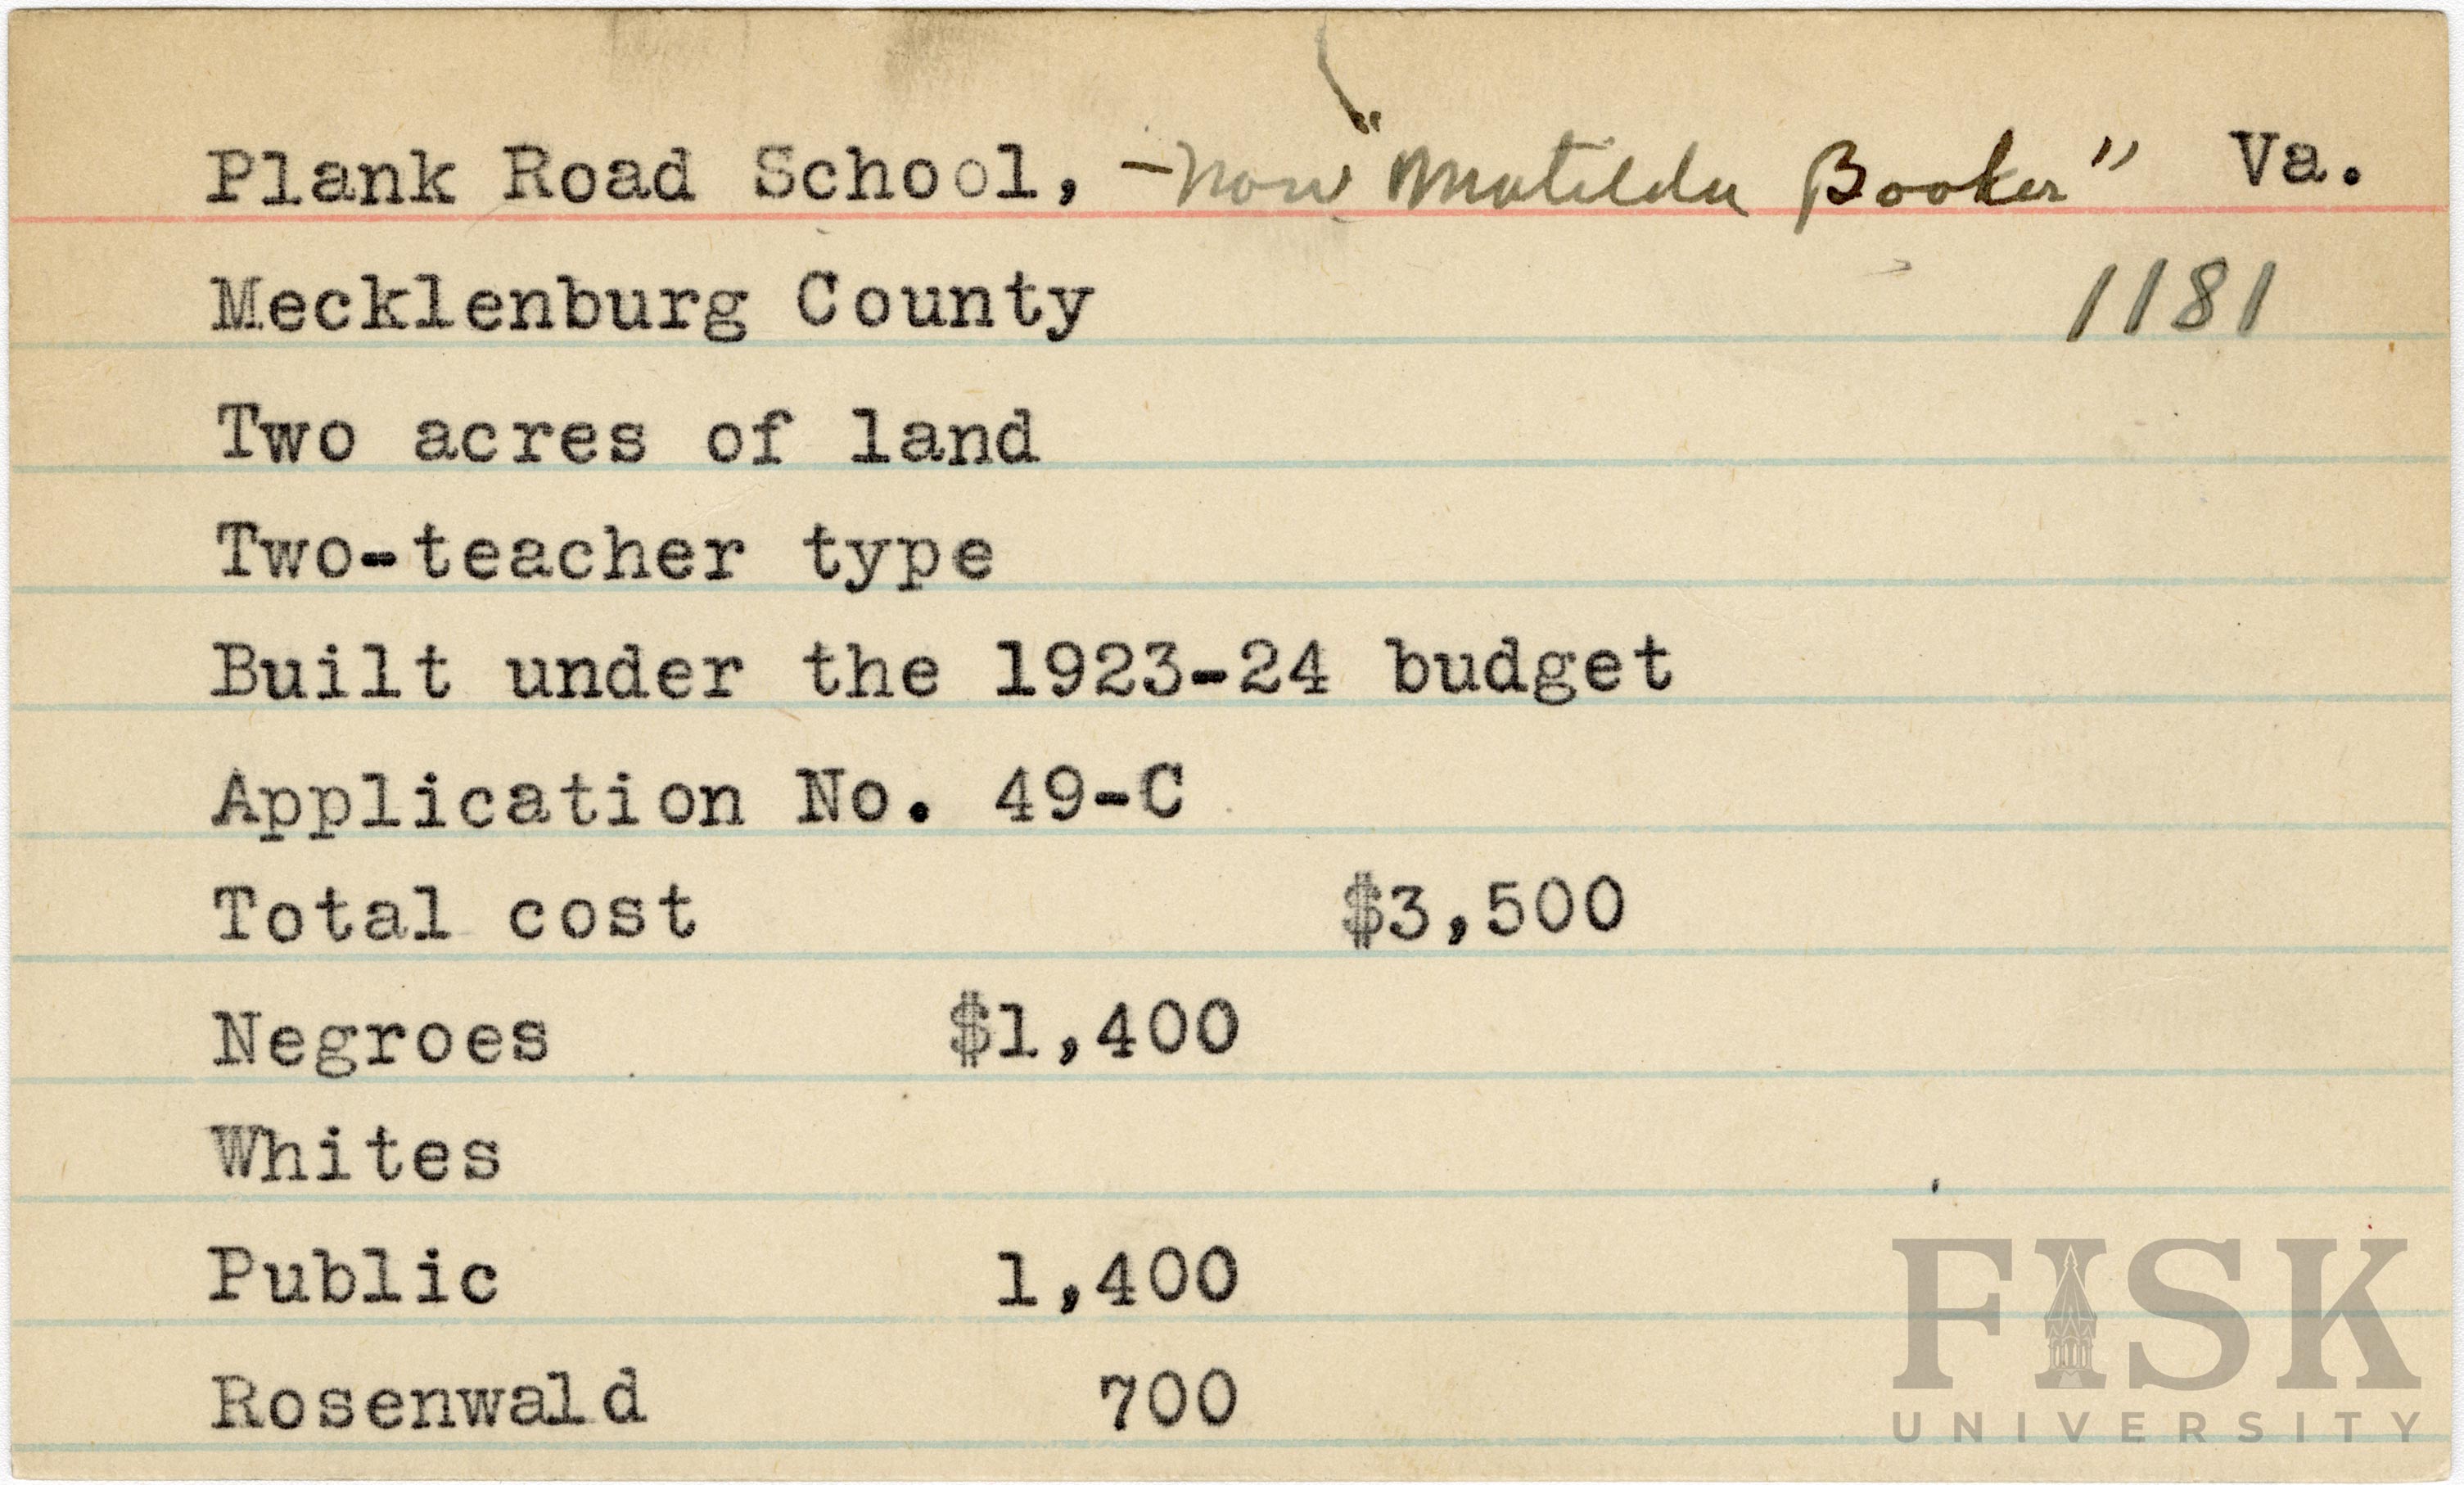 Plank Road School, - now "Matilda Booker" Va.
Mecklenburg County 1181
Two acres of land
Two-teacher type
Built under the 1923-24 budget
Application No. 49-C
Total cost $3,500
Negroes $1,400
Whites
Public 1,400
Rosenwald 700
FISK
UNIVERSITY